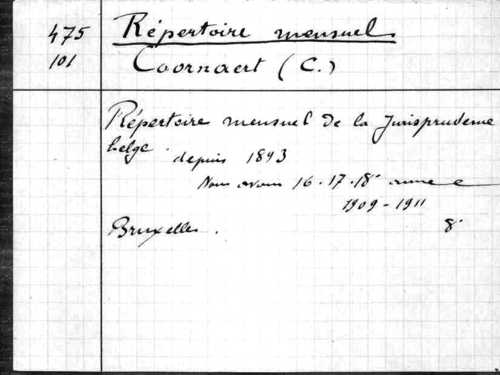 475 Répertoire mensuel
101 Coornaert (C.)
Répertoire mensuel de la Jurisprudence
belge.
depuis 1893
Nous avons 16-17-18e année
1909-1911
Bruxelles.
8°